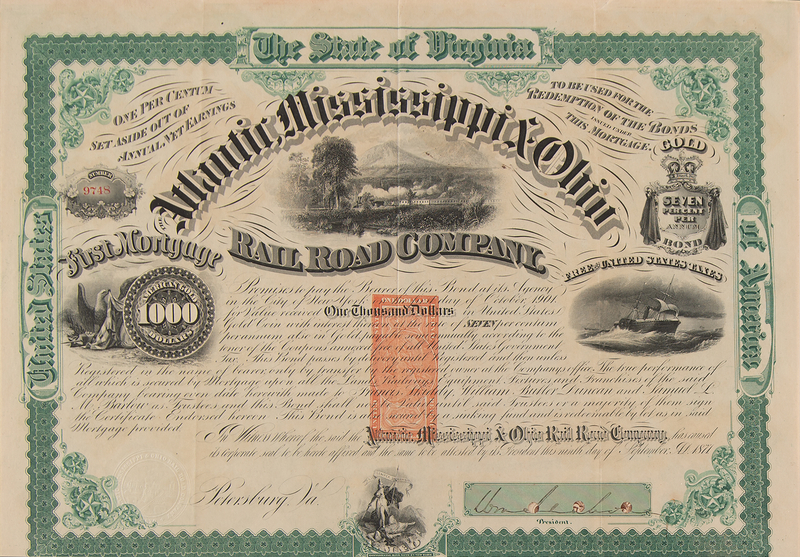 The State of Virginia
United States
of America
ONE PER CENTUM
SET ASIDE OUT OF
ANNUAL NET EARNINGS
TO BE USED FOR THE
REDEMPTION OF THE BONDS
ISSUED UNDER
THIS MORTGAGE.
NUMBER
9748
Atlantic, Mississippi & Ohio
RAIL ROAD COMPANY.
GOLD
SEVEN
PERCENT
PER
ANNUM
BOND
First Mortgage
FREE OF UNITED STATES TAXES
AMERICAN GOLD
1000
DOLLARS
Promises to pay the Bearer of this Bond at its Agency
in the City of New day of October, 1901
for Value received One Thousand Dollars in United States
Gold Coin with interest at the rate of SEVEN per centum
per annum also in Gold payable semi annually according to
tenor of the Coupons United States Government
Tax. This Bond passes by delivery until registered and then unless
Registered in name of bearer only by transfer on the register at the Company's office. The true performance of
all which is secured by Mortgage upon all the Lands Buildings Equipment Fixtures and Franchises of the said
Company bearing even date herewith made to William Butler Duncan and Samuel L.
M. Barlow as Trustees and this Bond shall not be the said Trustees or a majority of them sign
the Certificate endorsed hereon. This Bond is sinking fund and is redeemable by lot as in said
Mortgage provided.
In Witness whereof the said the Atlantic, Mississippi & Ohio Rail Road Company, has caused
its corporate seal to be hereto affixed and the same to be attested by its President this ninth day of September AD 1871
Petersburg, Va.
President.